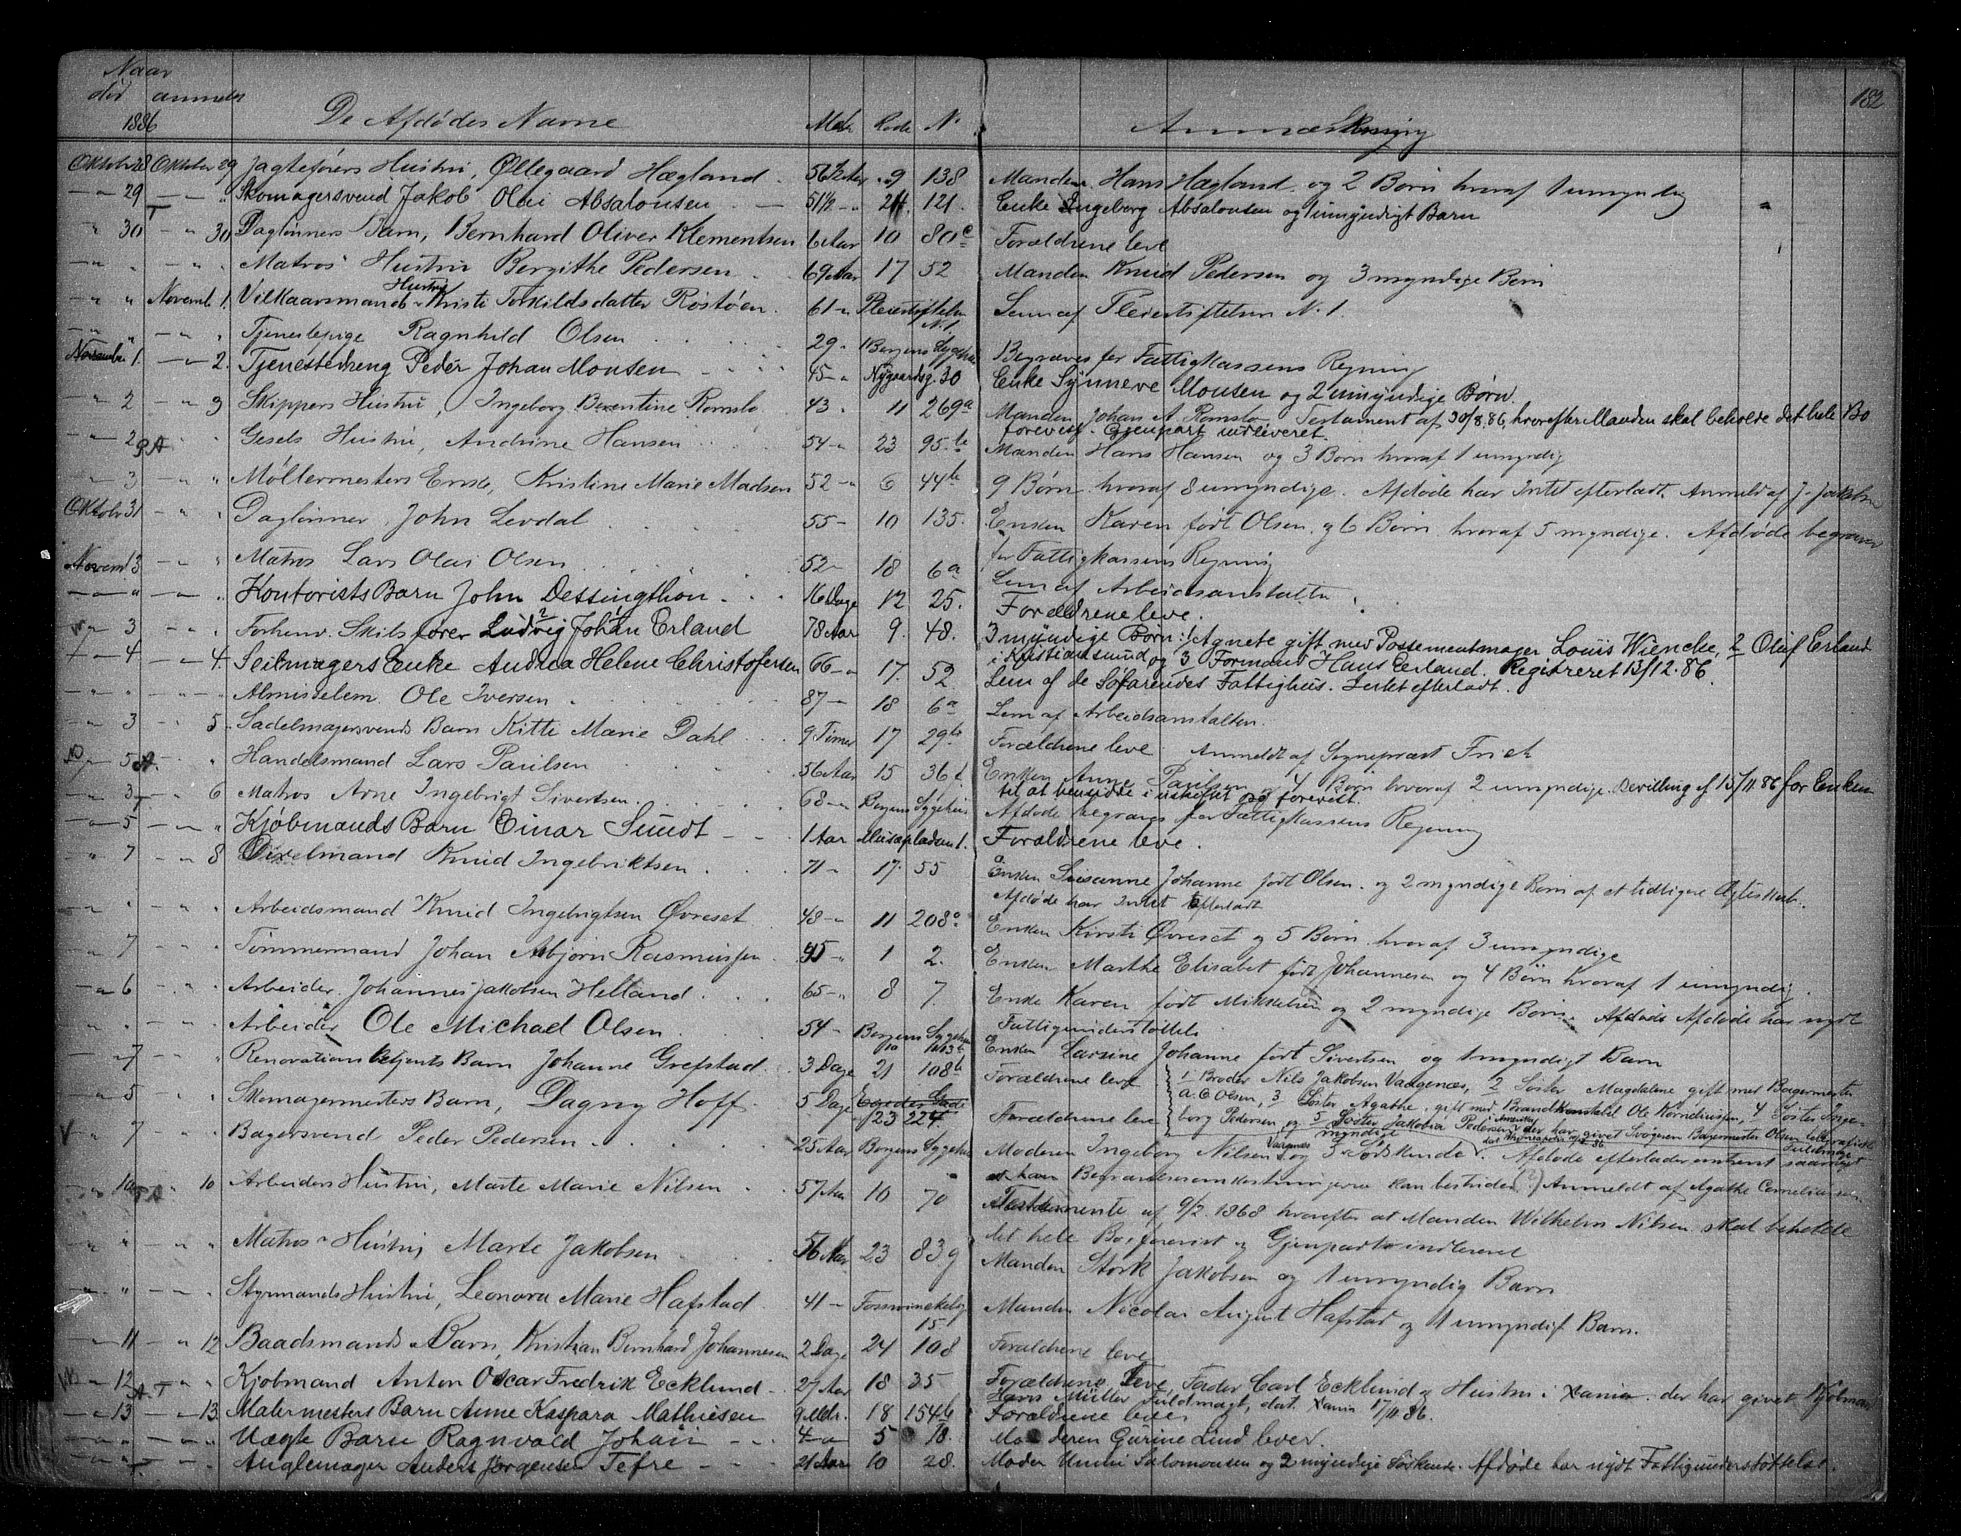 Naar 182
død anmeldt
1886 De Afdødes Navne Alder Rode N. Anmærkning
Oktober 28 Oktober 29 Jagteførers Hustru, Øllegaard Hægland 56 Aar 9 138 Manden Hans Hægland og 2 Børn hvoraf 1 umyndig
29 " Skomagersvend Jakob Olai Absalonsen 51½ 24. 121. Enke Ingeborg Absalonsen og 1 umyndigt Barn
" 30 T " 30 Daglønners Barn, Bernhard Oliver Klementsen 6 Aar 10 80c Forældrene leve
" " Matros Hustru Bergithe Pedersen 69 Aar 17 52 Manden Knud Pedersen og 3 myndige Børn
" " Novemb 1. Vilkaarsmands Hustru Kristi Torkildsdatter Røstøen. 61 Pleiestiftelsen N.1 Lem af Pleiestiftelsen N. 1.
" " Tjenestepige Ragnhild Olsen 29 Bergens Sygehus Begraves for Fattigkassens Regning
November 1. 2. Tjenestedreng Peder Johan Monsen 45 Nygaardsg. 30 Enke Synneve Monsen og 2 umyndige Børn.
2 " 3 Skippers Hustru, Ingeborg Berentine Romslo 43 11 269a Manden Johan A. Romslo. Testament af 30/8.86, hvorefter Manden skal beholde det hele Bo
forevist. Gjenpart indleveret.
2 A " Gesels Hustru, Andrine Hansen 54 23 95b Manden Hans Hansen og 3 Børn hvoraf 1 umyndig
3 " Møllermesters Enke, Kristine Marie Madsen 52 6 44b 9 Børn hvoraf 8 umyndige. Afdøde har Intet efterladt. Anmeld af J. Jakobsen
Oktober 31 " Daglønner John Levdal 55 10 135. Enken Karen født Olsen og 6 Børn hvoraf 5 myndige. Afdøde begraves
for Fattigkassens Regning
Novemb 3 " Matros Lars Olai Olsen 52 18 6a Lem af Arbeidsanstalten
" " Kontorists Barn John Dessingthon 16 Dage 12 25. Forældrene leve.
3 " Forhenv. Skibsfører Ludvig Johan Erland 78 Aar 9. 48. 3 myndige Børn: 1 Agnete gift med Possementmager Louis Wiencke, 2 Oluf Erland
i Kristiansund og 3 Formand Hans Erland. Registreret 13/12.86.
4 4. Seilmagers Enke Andrea Helene Christofersen 66 17. 52 Lem af de Søfarendes Fattighus. Intet efterladt.
" " Almisselem Ole Iversen 87 18 6a Lem af Arbeidsanstalten.
3 5. Sadelmagersvends Barn Kitti Marie Dahl 9 Timer 17 29b Forældrene leve Anmeldt af Sogneprest Frich
5 A. " Handelsmand Lars Paulsen 56 Aar 15 36d Enken Anne Paulsen 4 Børn hvoraf 2 umyndige. Bevilling af 15/11 86 for Enken
til at hensidde i uskiftet Bo forevist.
3 T 6 Matros Arne Ingebrigt Sivertsen 68 Bergens Sygehus Afdøde begraves for Fattigkassens Regning
5 " Kjøbmands Barn Einar Sundt 1 Aar Museepladsen 1. Forældrene leve.
7 8 Knud Ingebriktsen 71 17. 55 Enken Susanne Johanne født Olsen og 2 myndige Børn af et tidligere Ægteskab.
Afdøde har Intet efterladt
" " Arbeidsmand Knud Ingebrigtsen Øvreset 48 11 208a Enken Kirsti Øvreset og 5 Børn hvoraf 3 umyndige
7 " Tømmermand Johan Asbjørn Rasmussen 45 1 2. Enken Marthe Elisabet født Johannesen og 4 Børn hvoraf 1 umyndig.
6 " Arbeider Johannes Jakobsen Helland 65 8 7. Enke Karen født Mikkelsen og 2 myndige Børn. Afdøde har nydt
Fattigunderstøttelse
" " Arbeider Ole Michael Olsen 54 Bergens Sygehus Enken Larsine Johanne født Sivertsen og 1 myndigt Barn
7 " Renovationsbetjents Barn Johanne Grefstad 3 Dage 21 108b Forældrene leve { 1 Broder Nils Jakobsen Vaagenæs, 2 Søster Magdalene gift med Bagermester
A. C. Olsen, 3 Søster Agathe, gift med Brandkonstabel Ole Korneliussen, 4 Søster Inge-
5 " Skomagermesters Barn, Dagny Hoff 5 Dage 23 224. Forældrene leve borg Pedersen og 5 Søster Jakobia Pedersen i Amerika der har givet Svogeren Bagermester Olsen
V 7 " Bagersvend Peder Pedersen 25 Aar Bergens Sygehus Moderen Ingeborg Nilsen og 3 myndige Søskende. Afdøde efterlader omtrent saameget
at hans Begravelsesomkostninger kan bestrides (?) Anmeldt af Agathe Corneliussen.
10 T A " 10 Arbeiders Hustru, Marte Marie Nilsen 57 Aar 10 70 Testamente af 9/2. 1868 hvorefter at Manden Wilhelm Nilsen skal beholde
det hele Bo, forevist og Gjenpart indleveret
" " Matros Hustru Marte Jakobsen 56 Aar 23 83g Manden Stork Jakobsen og 1 umyndig Barn
" " Styrmands Hustru, Leonora Marie Hafstad 41 Fosswinckelsg 15 Manden Nicolai August Hafstad og 1 umyndigt Barn.
11 " 12 Baadsmands Barn, Kristian Bernhard Johannesen 2 Dage 24 108 Forældrene leve
12 A T " Kjøbmand Anton Oscar Fredrik Ecklund 27 Aar 18 35 Forældrene leve, Fader Carl Ecklund og Hustru i Xania. der har givet Kjøbmand
Hans Müller Fuldmagt, dat. Xania 17/11 86.
13 13. Malermesters Barn Anne Kaspara Mathiesen 9 Mdr. 18 154b Forældrene leve
" " Uægte Barn Ragnvald Johan 4 5 18. Moderen Gurine Lind lever.
" " Anglemager Anders Jørgensen Tefre 21 Aar 10 28. Moder Unni Salomonsen og 2 myndige Søskende. Afdøde har nydt Fattigunderstøttelse.